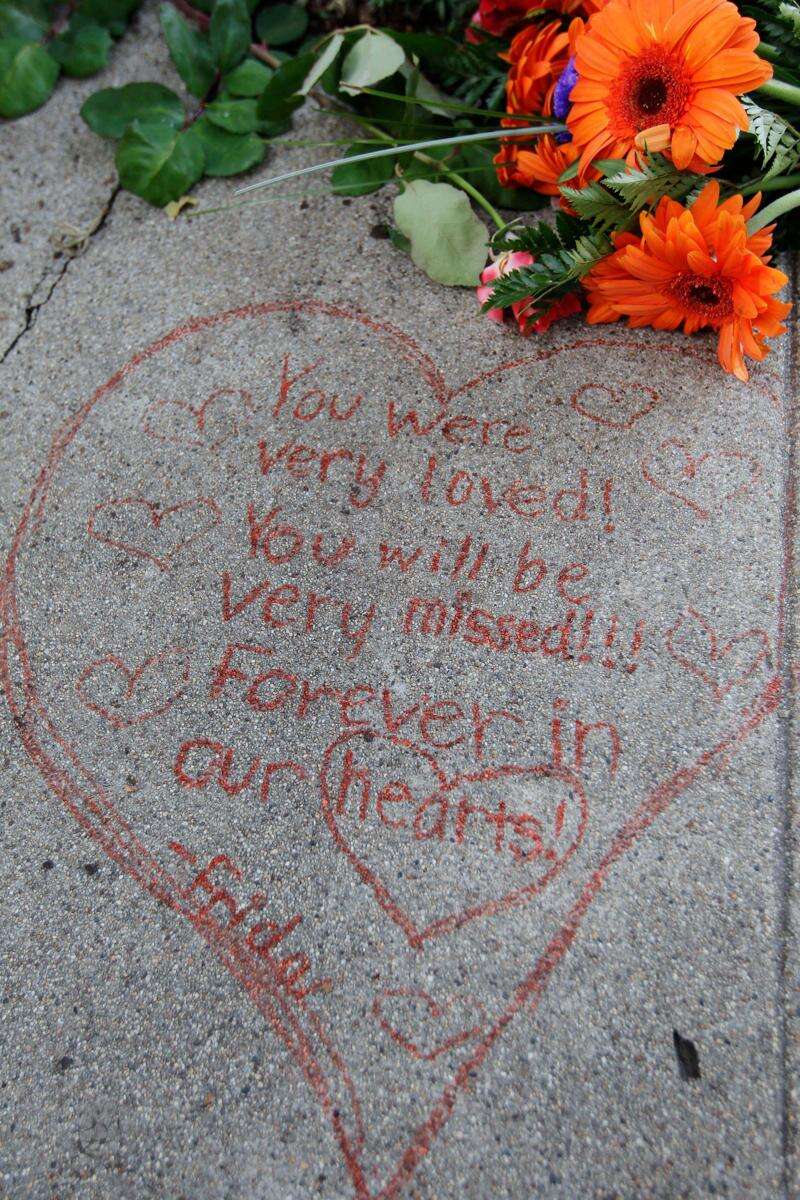 You were
very loved!
You will be
very missed!!!
Forever in
our hearts!
-Frida